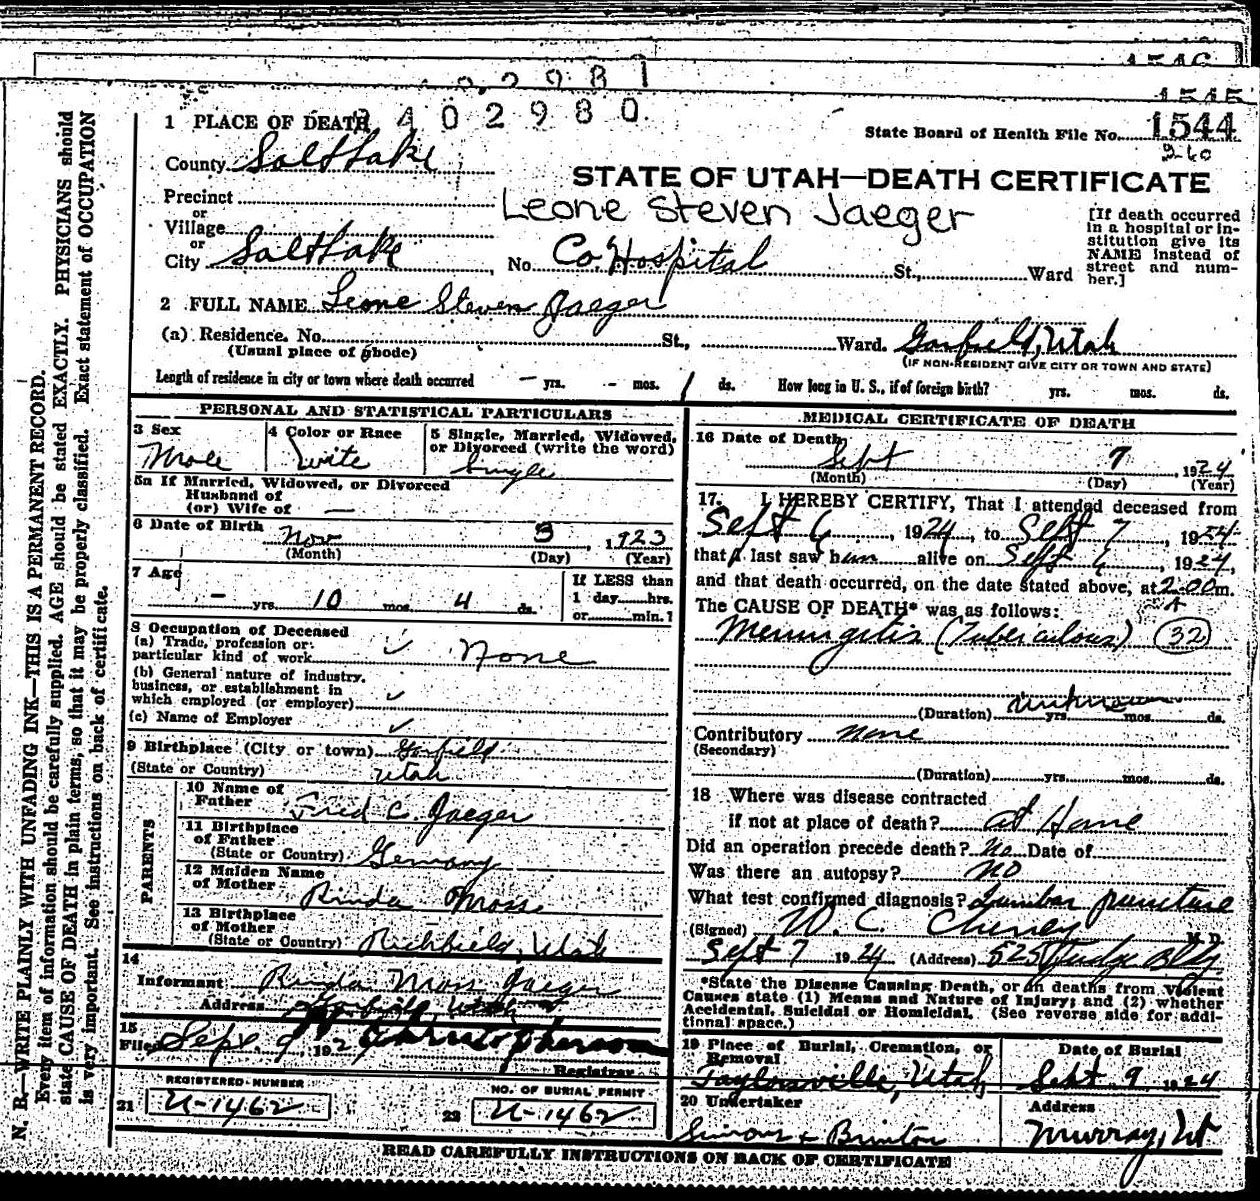 1546
1545
2 9 8 1
2402980
State Board of Health File No. 1544
260
1 PLACE OF DEATH
County Salt Lake
STATE OF UTAH—DEATH CERTIFICATE
Precinct
or
Village
or
Leone Steven Jaeger
City Salt Lake, No. Co. Hospital St., Ward
[If death occurred
in a hospital or in-
stitution give its
NAME instead of
street and num-
ber.]
2 FULL NAME Leone Steven Jaeger
(a) Residence. No. St., Ward. Garfield, Utah
(Usual place of abode)
(IF NON-RESIDENT GIVE CITY OR TOWN AND STATE)
Length of residence in city or town where death occurred - yrs. - mos. 1 ds. How long in U. S., if of foreign birth? yrs. mos. ds.
PERSONAL AND STATISTICAL PARTICULARS
3 Sex
Male
4 Color or Race
White
5 Single, Married, Widowed,
or Divorced (write the word)
Single
5a If Married, Widowed, or Divorced
Husband of
(or) Wife of —
6 Date of Birth
Nov 3, 1923
(Month) (Day) (Year)
7 Age
- yrs. 10 mos. 4 ds.
If LESS than
1 day hrs.
or min.?
8 Occupation of Deceased
(a) Trade, profession or
particular kind of work None
(b) General nature of industry,
business, or establishment in
which employed (or employer)
(c) Name of Employer
9 Birthplace (City or town) Garfield
(State or Country) Utah
PARENTS
10 Name of
Father Fred C. Jaeger
11 Birthplace
of Father
(State or Country) Germany
12 Maiden Name
of Mother Rinda Moss
13 Birthplace
of Mother
(State or Country) Richfield, Utah
14
Informant Rinda Moss Jaeger
Address Garfield, Utah
15
Filed Sept 9, 192
Registrar
REGISTERED NUMBER
21 U-1462
NO. OF BURIAL PERMIT
22 U-1462
MEDICAL CERTIFICATE OF DEATH
16 Date of Death
Sept 7, 1924
(Month) (Day) (Year)
17. I HEREBY CERTIFY, That I attended deceased from
Sept 6, 1924, to Sept 7, 1924
that I last saw him alive on Sept 6, 1924,
and that death occurred, on the date stated above, at 2:00 m.
A
The CAUSE OF DEATH* was as follows:
Meningitis (Tuberculous) 32
(Duration) unknown yrs. mos. ds.
Contributory none
(Secondary)
(Duration) yrs. mos. ds.
18 Where was disease contracted
if not at place of death? at Home
Did an operation precede death? No Date of
Was there an autopsy? NO
What test confirmed diagnosis? Lumbar puncture
(Signed) W. C. Cheney M. D.
Sept 7 1924 (Address) 525 Judge Bldg
*State the Disease Causing Death, or in deaths from Violent
Causes state (1) Means and Nature of Injury; and (2) whether
Accidental, Suicidal or Homicidal. (See reverse side for addi-
tional space.)
19 Place of Burial, Cremation, or
Removal
Taylorsville, Utah
Date of Burial
Sept 9 1924
20 Undertaker
Address
Murray, Ut
READ CAREFULLY INSTRUCTIONS ON BACK OF CERTIFICATE
N. B.—WRITE PLAINLY WITH UNFADING INK—THIS IS A PERMANENT RECORD.
Every item of information should be carefully supplied. AGE should be stated EXACTLY. PHYSICIANS should
state CAUSE OF DEATH in plain terms, so that it may be properly classified. Exact statement of OCCUPATION
is very important. See instructions on back of certificate.